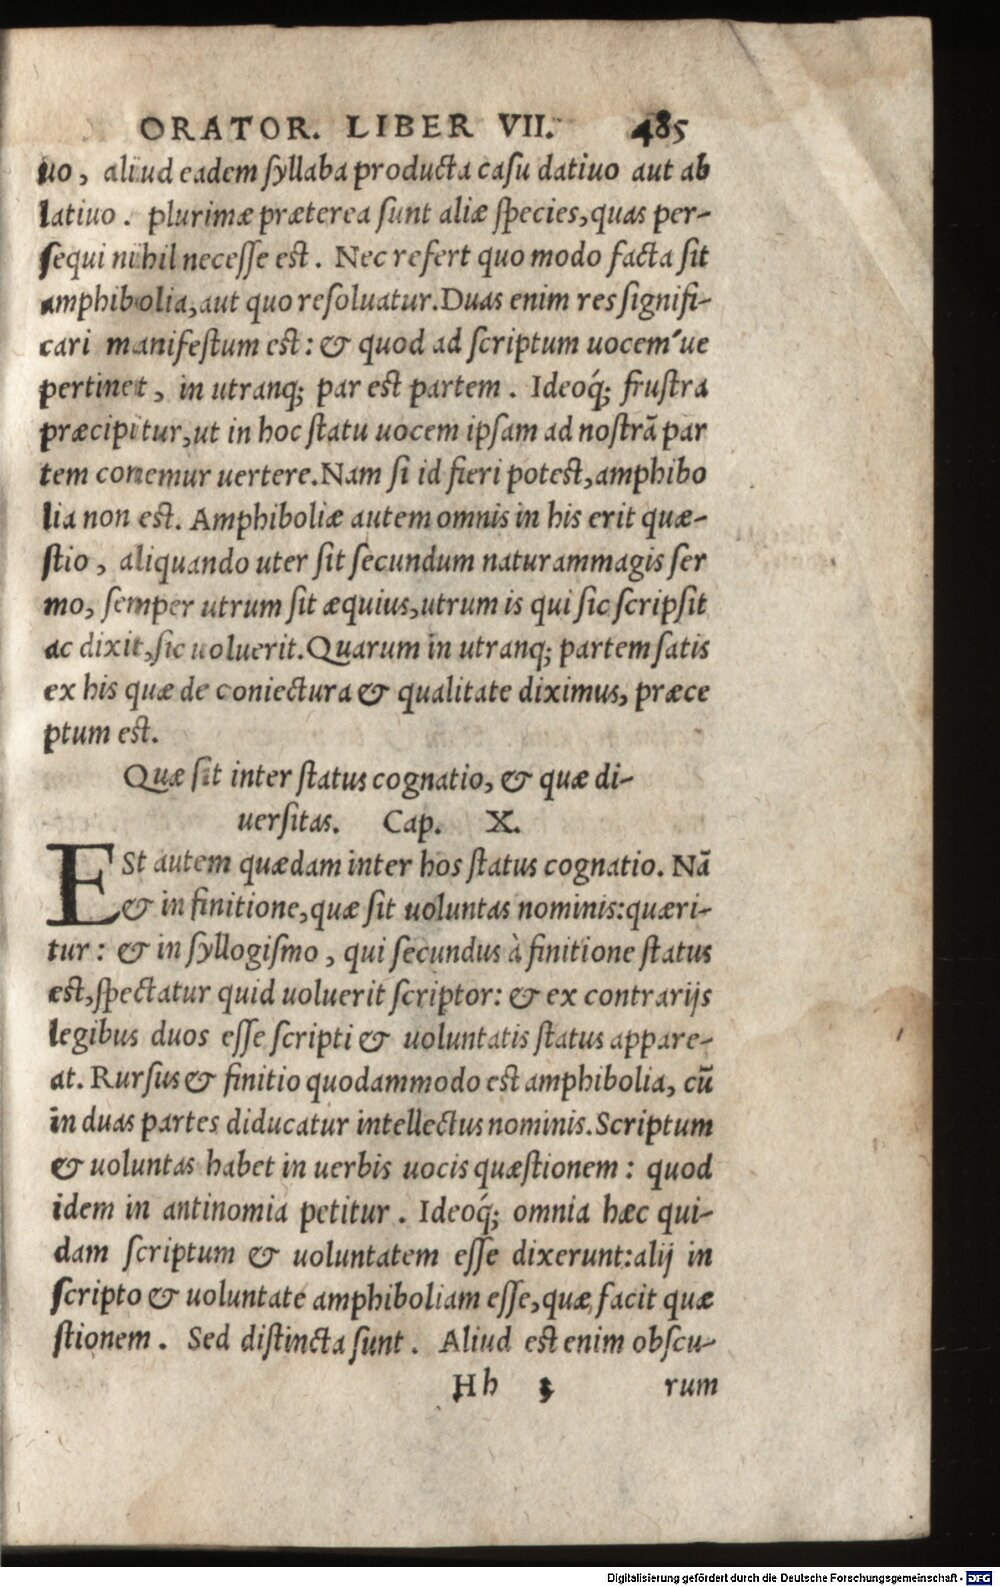 ORATOR. LIBER VII. 485
uo, aliud eadem ſyllaba producta caſu datiuo aut ab
latiuo. plurimæ præterea ſunt aliæ ſpecies, quas per-
ſequi nihil neceſſe est. Nec refert quo modo facta ſit
amphibolia, aut quo reſoluatur. Duas enim res ſignifi-
cari manifeſtum est: & quod ad ſcriptum uocem'ue
pertinet, in utranq; par est partem. Ideoq́; fruſtra
præcipitur, ut in hoc ſtatu uocem ipſam ad noſtrā par
tem conemur uertere. Nam ſi id fieri poteſt, amphibo
lia non est. Amphiboliæ autem omnis in his erit quæ-
ſtio, aliquando uter ſit ſecundum naturam magis ſer
mo, ſemper utrum ſit æquius, utrum is qui ſic ſcripſit
ac dixit, ſic uoluerit. Quarum in utranq; partem ſatis
ex his quæ de coniectura & qualitate diximus, præce
ptum est.
Quæ ſit inter ſtatus cognatio, & quæ di-
uerſitas. Cap. X.
ESt autem quædam inter hos ſtatus cognatio. Nā
& in finitione, quæ ſit uoluntas nominis: quæri-
tur: & in ſyllogiſmo, qui ſecundus à finitione ſtatus
est, ſpectatur quid uoluerit ſcriptor: & ex contrarijs
legibus duos eſſe ſcripti & uoluntatis ſtatus appare-
at. Rurſus & finitio quodammodo est amphibolia, cū
in duas partes diducatur intellectus nominis. Scriptum
& uoluntas habet in uerbis uocis quæſtionem: quod
idem in antinomia petitur. Ideoq́; omnia hæc qui-
dam ſcriptum & uoluntatem eſſe dixerunt: alij in
ſcripto & uoluntate amphiboliam eſſe, quæ facit quæ
ſtionem. Sed diſtincta ſunt. Aliud est enim obſcu-
Hh 3 rum
Digitalisierung gefördert durch die Deutsche Forschungsgemeinschaft - DFG